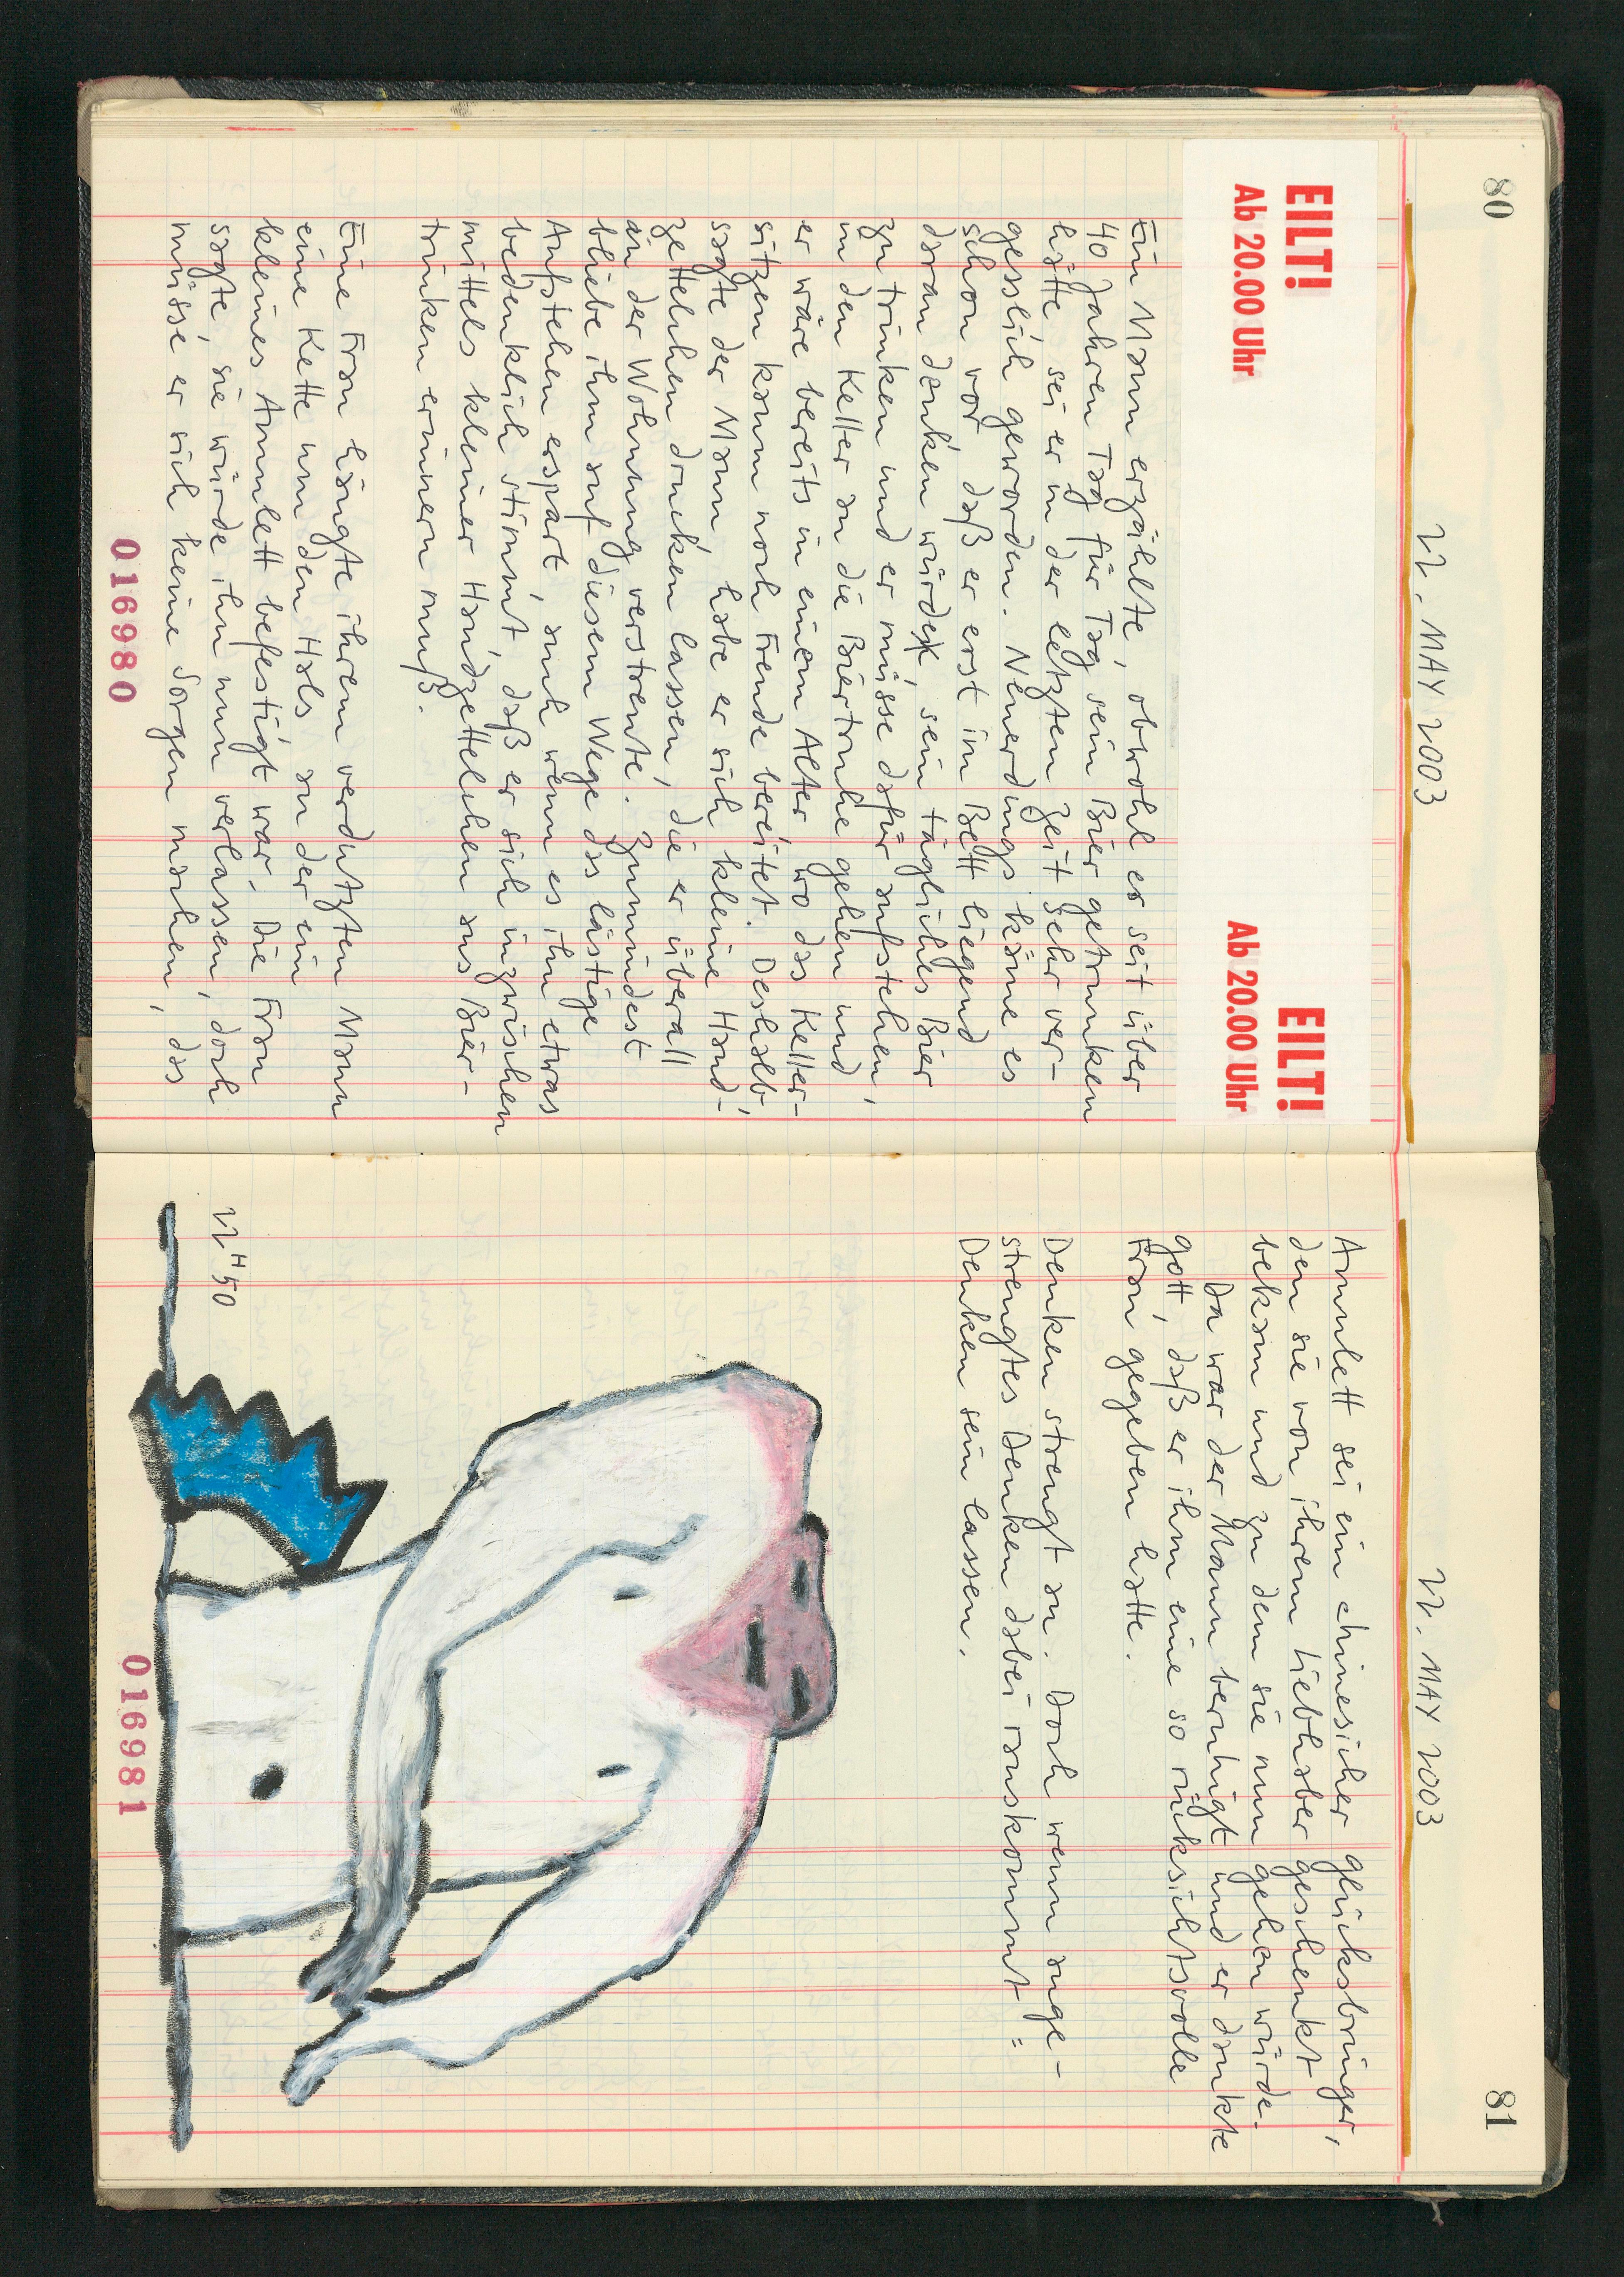 80
22. MAY 2003
EILT! EILT!
Ab 20.00 Uhr Ab 20.00 Uhr
Ein Mann erzählte, obwohl er seit über
40 Jahren Tag für Tag sein Bier getrunken
hätte, sei er in der letzten Zeit sehr ver-
gesslich geworden. Neuerdings käme es
schon vor, daß er erst im Bett liegend
daran denken würde, sein tägliches Bier
zu trinken und er müsse dafür aufstehen,
in den Keller an die Biertruhe gehen und
er wäre bereits in einem Alter wo das Keller-
sitzen kaum noch Freude bereitet. Deshalb,
sagte der Mann, habe er sich kleine Hand-
zettelchen drucken lassen, die er überall
in der Wohnung verstreute. Zumindest
bliebe ihm auf diesem Wege das lästige
Aufstehen erspart, auch wenn es ihn etwas
bedenklich stimmt, daß er sich inzwischen
mittels kleiner Handzettelchen ans Bier-
trinken erinnern muß.
Eine Frau hängte ihrem verdutzten Mann
eine Kette um den Hals an der ein
kleines Amulett befestigt war. Die Frau
sagte, sie würde ihn nun verlassen, doch
müsse er sich keine Sorgen machen, das
016980
81
22. MAY 2003
Amulett sei ein chinesicher glücksbringer,
den sie von ihrem Liebhaber geschenkt
bekam und zu dem sie nun gehen würde.
Da war der Mann beruhigt und er dankte
gott, daß er ihm eine so rücksichtsvolle
Frau gegeben hatte.
Denken strengt an. Doch wenn ange-
strengtes Denken dabei rauskommt =
Denken sein lassen.
22H50
016981